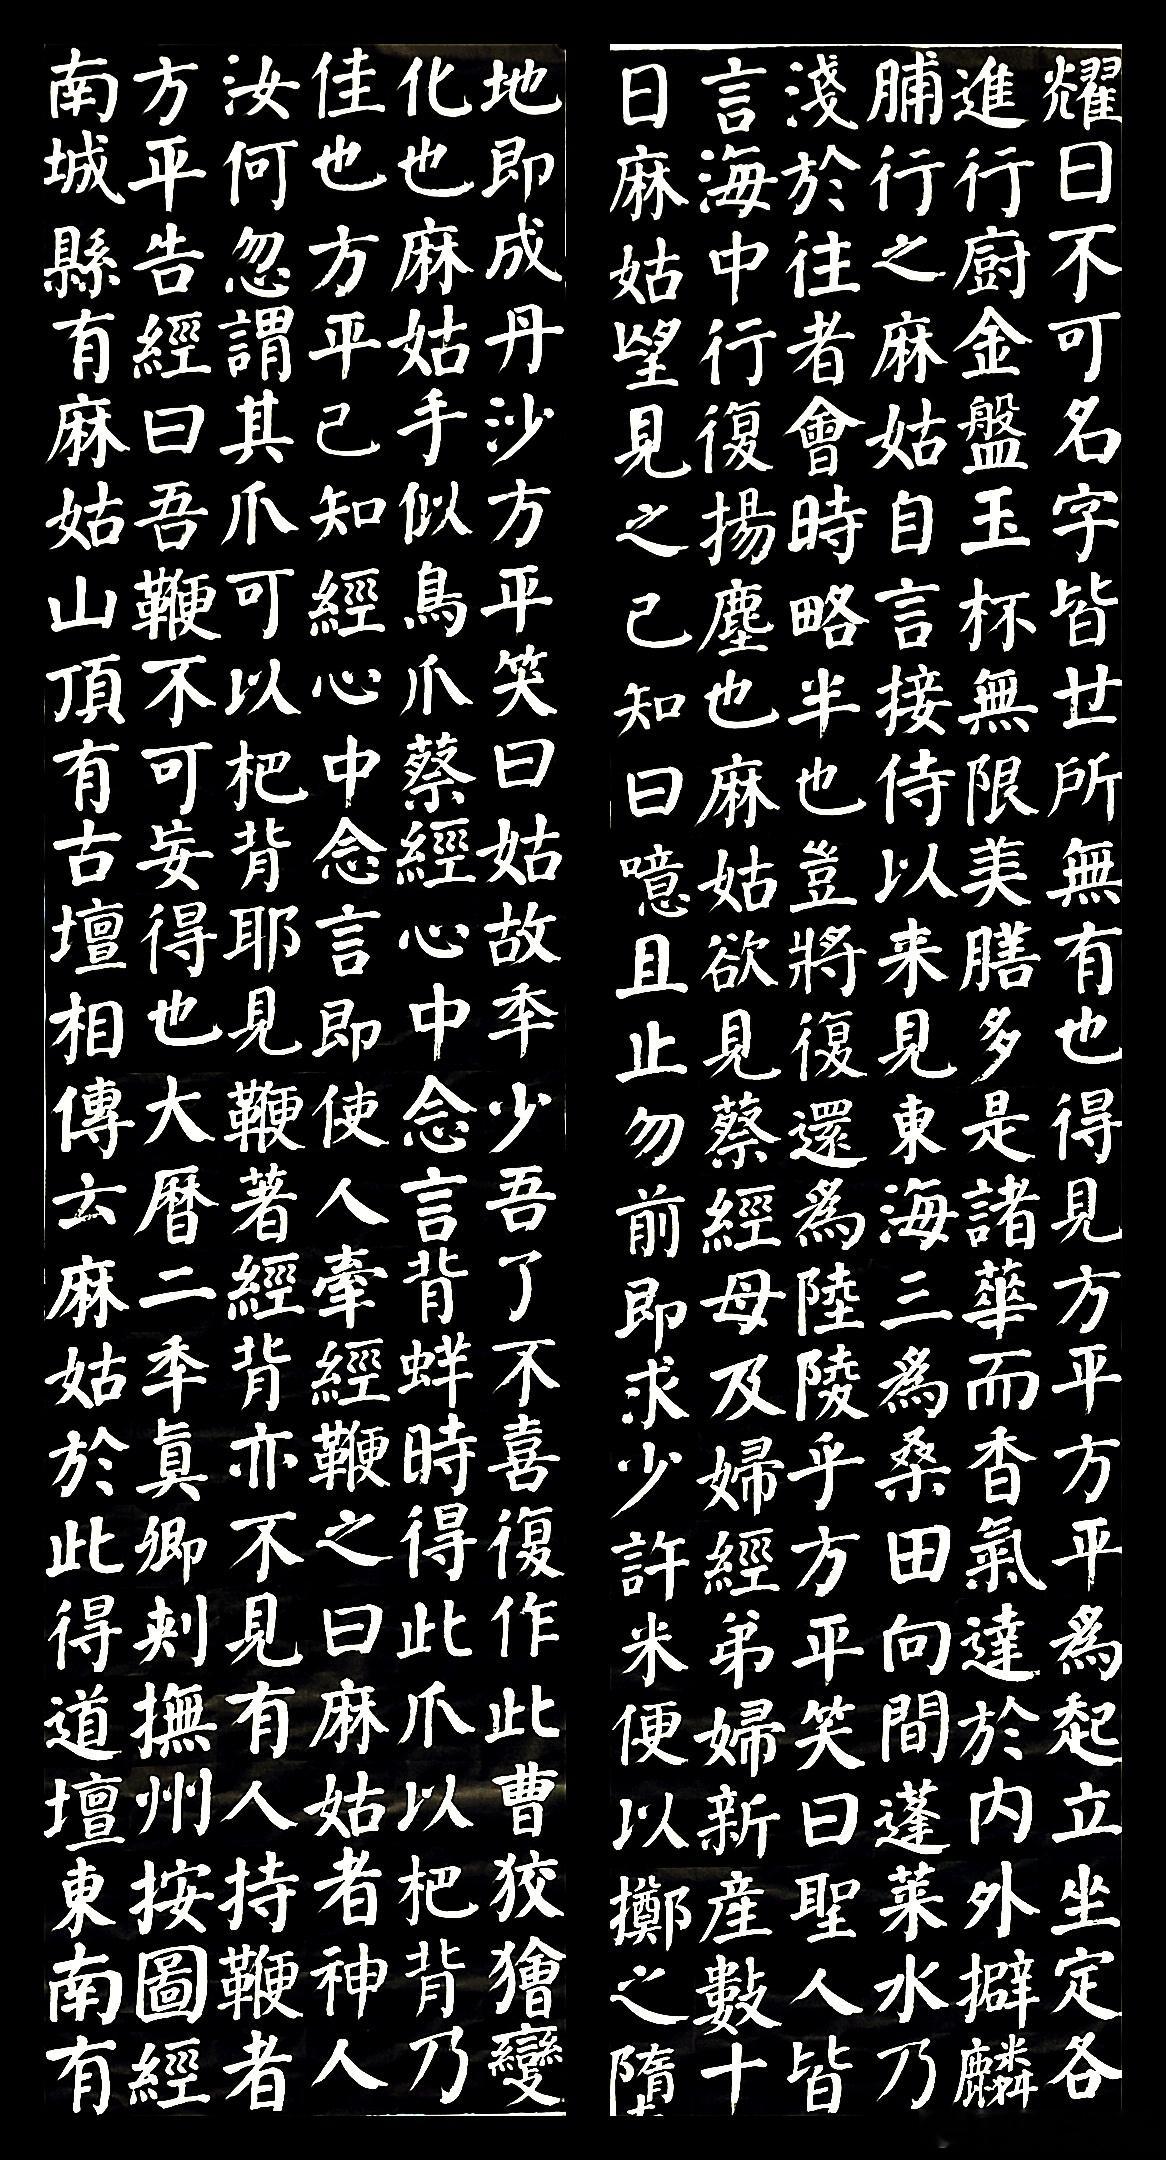 耀日不可名字皆世所無有也得見方平方平為起立坐定各
進行廚金盤玉杯無限美膳多是諸華而香氣達於内外擗麟
脯行之麻姑自言接侍以来見東海三為桑田向間蓬莱水乃
淺於往者會時略半也豈將復還為陸陵乎方平笑曰聖人皆
言海中行復揚塵也麻姑欲見蔡經母及婦經弟婦新産數十
日麻姑望見之已知曰噫且止勿前即求少許米便以擲之墮
地即成丹沙方平笑曰姑故年少吾了不喜復作此曹狡獪變
化也麻姑手似鳥爪蔡經心中念言背蛘時得此爪以杷背乃
佳也方平已知經心中念言即使人牽經鞭之曰麻姑者神人
汝何忽謂其爪可以杷背耶見鞭著經背亦不見有人持鞭者
方平告經曰吾鞭不可妄得也大曆二年真卿刺撫州按圖經
南城縣有麻姑山頂有古壇相傳云麻姑於此得道壇東南有